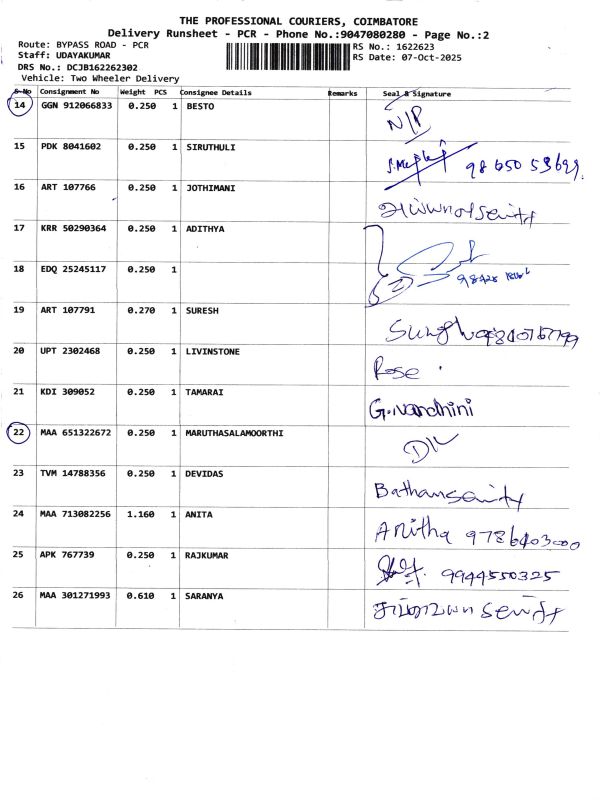 THE PROFESSIONAL COURIERS, COIMBATORE
Delivery Runsheet - PCR - Phone No.:9047080280 - Page No.:2
Route: BYPASS ROAD - PCR RS No.: 1622623
Staff: UDAYAKUMAR RS Date: 07-Oct-2025
DRS No.: DCJB162262302
Vehicle: Two Wheeler Delivery
S.No Consignment No Weight PCS Consignee Details Remarks Seal & Signature
14 GGN 912066833 0.250 1 BESTO N/P
15 PDK 8041602 0.250 1 SIRUTHULI
16 ART 107766 0.250 1 JOTHIMANI
17 KRR 50290364 0.250 1 ADITHYA
18 EDQ 25245117 0.250 1
19 ART 107791 0.270 1 SURESH
20 UPT 2302468 0.250 1 LIVINSTONE Rose
21 KDI 309052 0.250 1 TAMARAI G.Nandhini
22 MAA 651322672 0.250 1 MARUTHASALAMOORTHI D/L
23 TVM 14788356 0.250 1 DEVIDAS
24 MAA 713082256 1.160 1 ANITA Anitha 9786403000
25 APK 767739 0.250 1 RAJKUMAR 9944550325
26 MAA 301271993 0.610 1 SARANYA